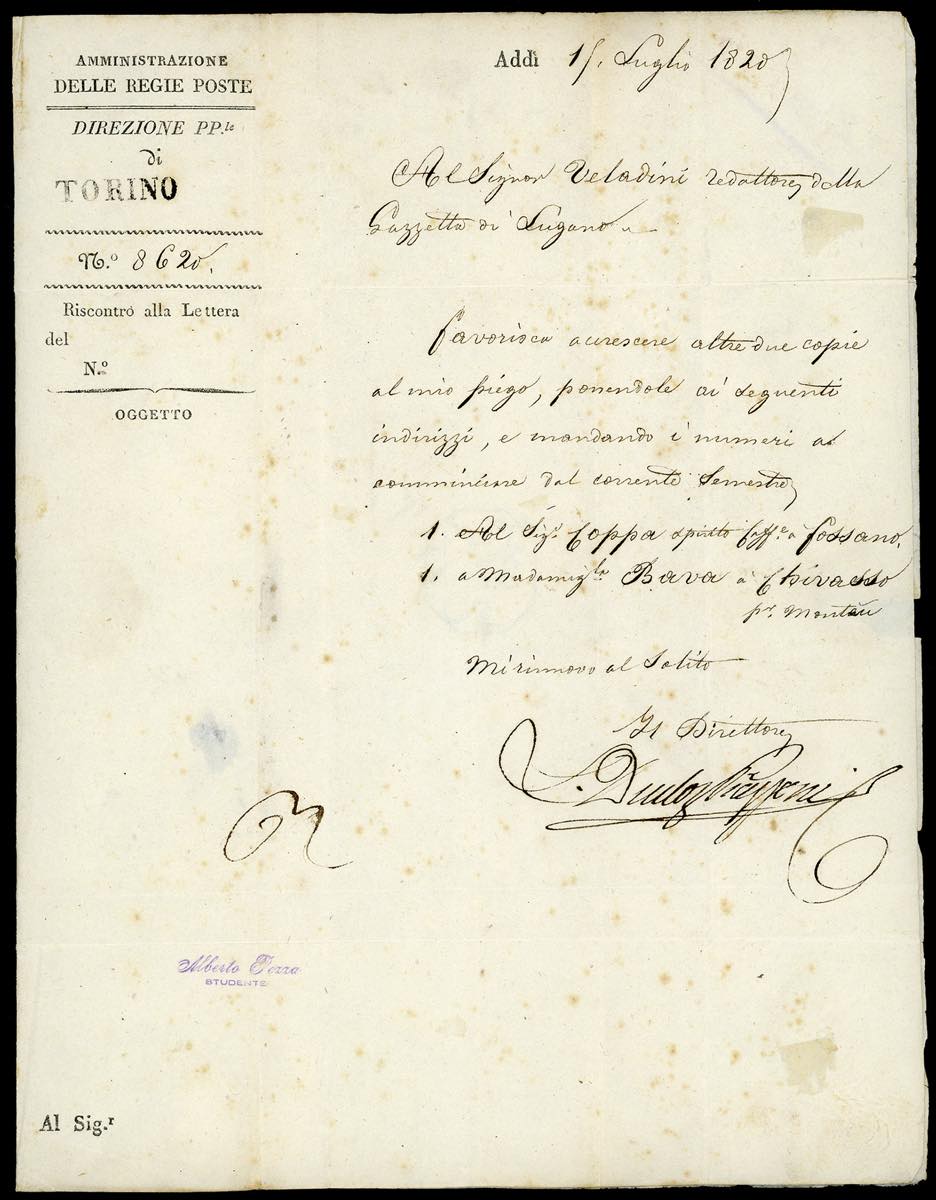 AMMINISTRAZIONE
DELLE REGIE POSTE
DIREZIONE PP.le
di
TORINO
N.o 8620.
Riscontro alla Lettera
del
N.o
OGGETTO
Addì 15. Luglio 1820
Al Signor Veladini redattore della
Gazzetta di Lugano
favorisca accrescere altre due copie
al mio piego, ponendole ai seguenti
indirizzi, e mandando i numeri a
comminciare dal corrente Semestre
1. Al Sig.r Coppa Caff.e a Fossano.
1. a Madamig.la Bava a Chivasso
Mi rinnovo al Solito
Il Direttore
Alberto Pezza
STUDENTE
Al Sig.r